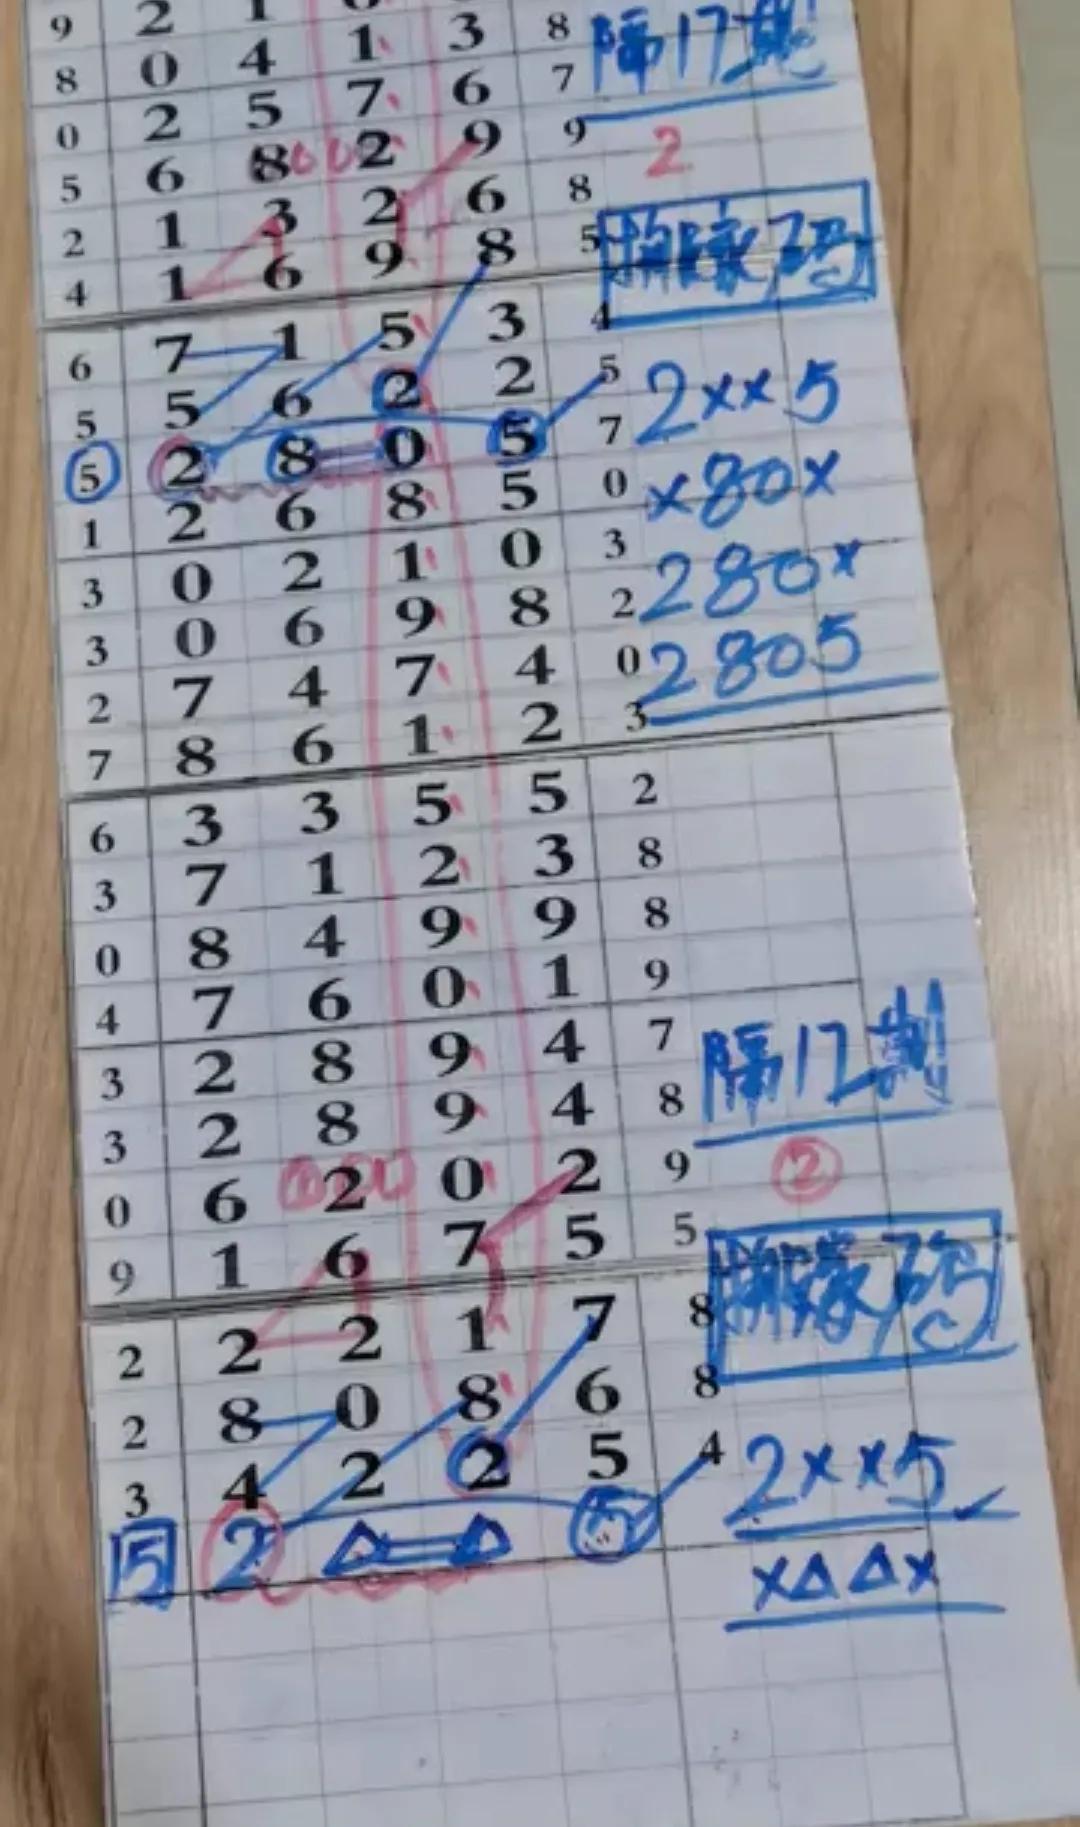 9 2 1
8 0 4 1 3 8 隔17期
0 2 5 7 6 7
5 6 8 2 9 9 2
2 1 3 2 6 8
4 1 6 9 8 5 码
6 7 1 5 3 4
5 5 6 2 2 5 2××5
5 2 8 0 5 7
1 2 6 8 5 0 ×80×
3 0 2 1 0 3
3 0 6 9 8 2 280×
2 7 4 7 4 0 2805
7 8 6 1 2 3
6 3 3 5 5 2
3 7 1 2 3 8
0 8 4 9 9 8
4 7 6 0 1 9
3 2 8 9 4 7 隔17期
3 2 8 9 4 8
0 6 2 0 2 9 2
9 1 6 7 5 5
2 2 2 1 7 8 码
2 8 0 8 6 8
3 4 2 2 5 4 2××5
5 2 △ △ 5
×△△×